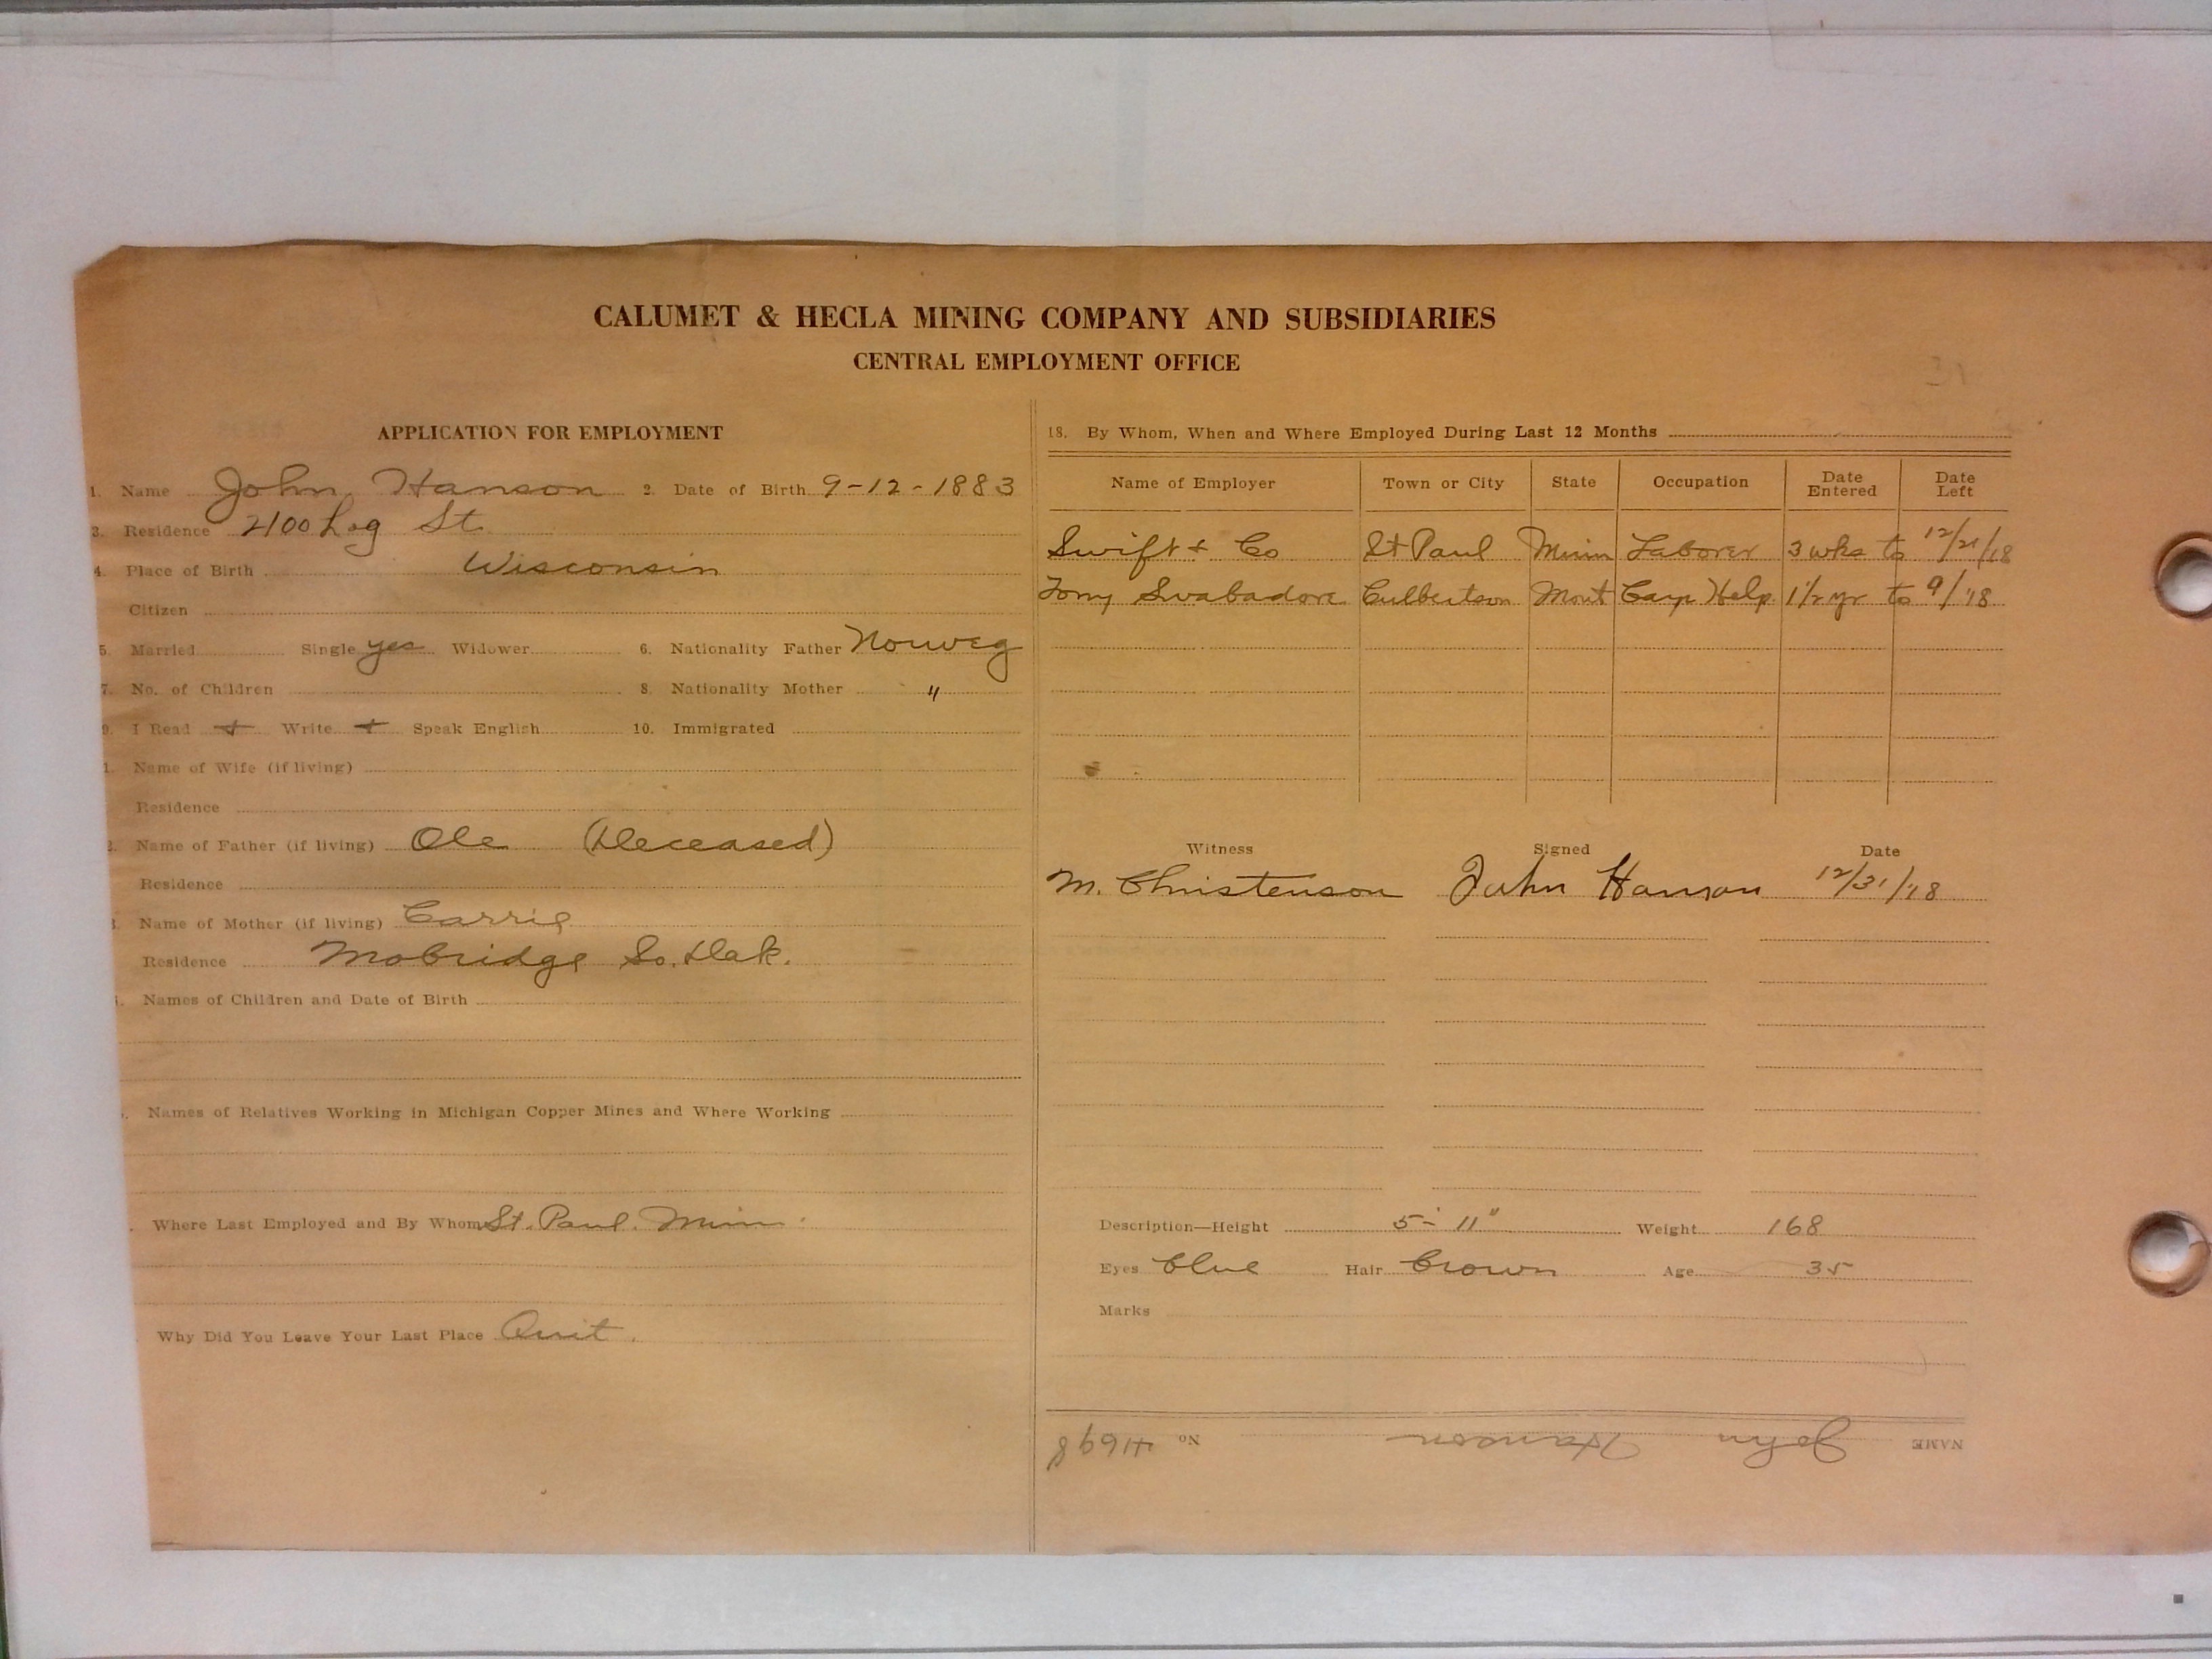 CALUMET & HECLA MINING COMPANY AND SUBSIDIARIES
CENTRAL EMPLOYMENT OFFICE
APPLICATION FOR EMPLOYMENT
1. Name John Hanson 2. Date of Birth 9-12-1883
3. Residence 2100 Log St.
4. Place of Birth Wisconsin
Citizen
5. Married Single yes Widower 6. Nationality Father Norweg
7. No. of Children 8. Nationality Mother "
9. I Read + Write + Speak English 10. Immigrated
1. Name of Wife (if living)
Residence
Name of Father (if living) Ole (Deceased)
Residence
Name of Mother (if living) Carrie
Residence Mobridge So. Dak.
Names of Children and Date of Birth
Names of Relatives Working in Michigan Copper Mines and Where Working
Where Last Employed and By Whom St. Paul. Minn.
Why Did You Leave Your Last Place Quit.
18. By Whom, When and Where Employed During Last 12 Months
Name of Employer Town or City State Occupation Date Entered Date Left
Swift + Co St Paul Minn Laborer 3 wks to 12/21/18
Tony Swabadore Culbertson Mont Carp Help. 1 1/2 yr to 9/'18
Witness Signed Date
M. Christenson John Hanson 12/31/'18
Description—Height 5-'11" Weight 168
Eyes blue Hair brown Age 35
Marks
NAME John Hanson No. 4698